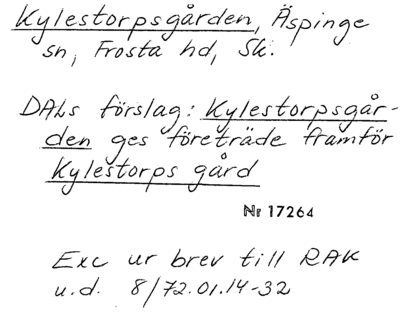 Kylestorpsgården, Äspinge
sn, Frosta hd, Sk.
DALs förslag: Kylestorpsgår-
den ges företräde framför
Kylestorps gård
Nr 17264
Exc ur brev till RAK
u.d. 8/72.01.14-32